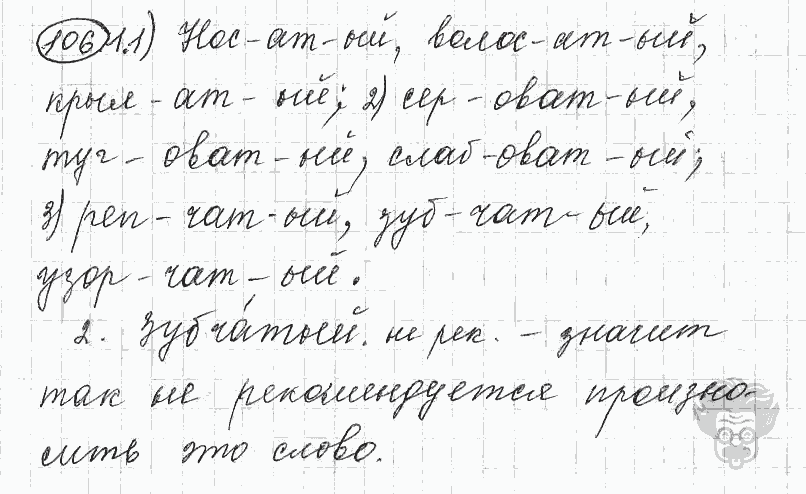 106 1.1) Нос-ат-ый, волос-ат-ый,
крыл-ат-ый; 2) сер-оват-ый,
туг-оват-ый, слаб-оват-ый;
3) реп-чат-ый, зуб-чат-ый,
узор-чат-ый.
2. Зубча́тый. не рек. - значит
так не рекомендуется произно-
сить это слово.